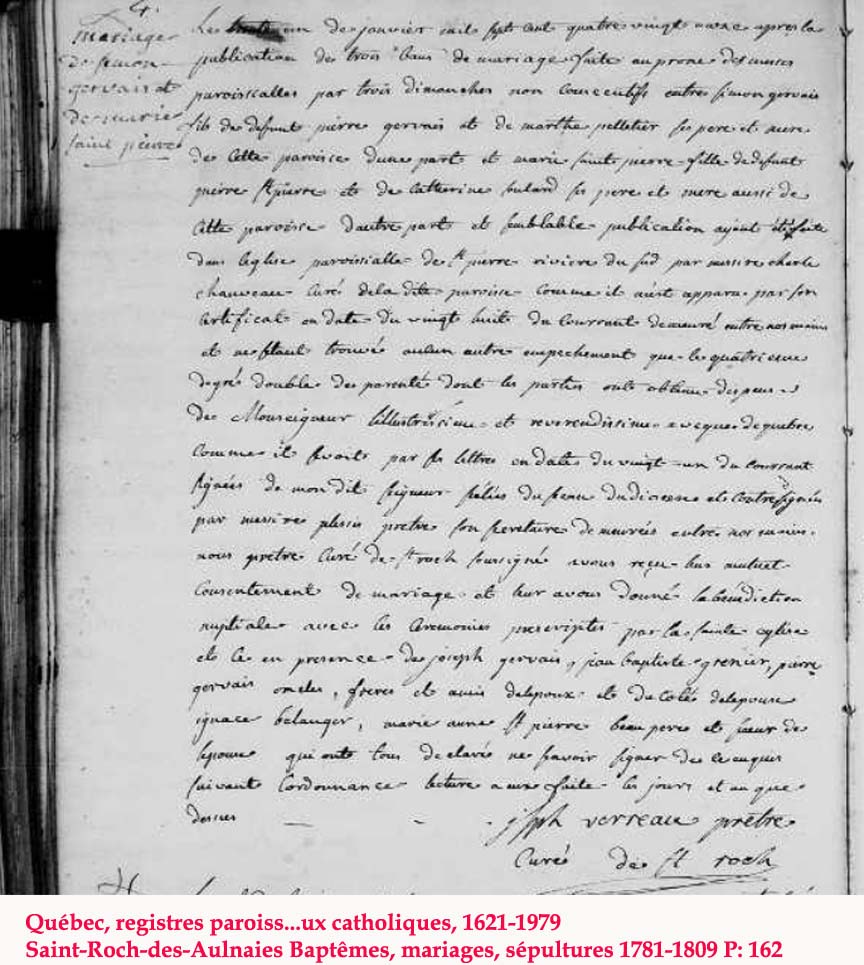 4.
mariage
de simon
gervais et
de marie
saint pierre
Le trente un de janvier mil sept cent quatre vingt onze apres la
publication de trois bans de mariage faite au prone des messes
paroissialles par trois dimanches non consecutifs entre simon gervais
fils de defunt pierre gervais et de marthe pelletier ses pere et mere
de cette paroisse d'une part et marie saint pierre fille de defunt
pierre st pierre et de catterine soulard ses pere et mere aussi de
cette paroisse d'autre part et semblable publication ayant été faite
dans leglise paroissialle de st pierre riviere du sud par messire charle
chauveau curé de la dite paroisse comme il m'est apparu par son
certificat en date du vingt huit du courrant demeuré entre nos mains
et ne s'étant trouvée aucun autre empechement que le quatrieme
degré double de parenté dont les parties ont obtenu dispense
de Monseigneur lillustrissime et reverendissime eveque de quebec
comme il savoit par ses lettres en date du vingt-un du courrant
signées de mon dit seigneur séllés du sceau du diocese et contresignées
par messire plessis pretre son secretaire demeurées entre nos mains.
nous pretre curé de st roch soussigné avons reçu leur mutuel
consentement de mariage et leur avons donné la bénédiction
nuptiale avec les ceremonies prescriptes par la sainte eglise
et ce en presence de joseph gervais, jean baptiste grenier, pierre
gervais oncles, freres et amis de lepoux et du coté de lepouse
ignace belanger, marie anne st pierre beau pere et sœur de
lepouse qui ont tous declarés ne savoir signer de ce enquis
suivant lordonnance lecture a eux faite les jours et an que
dessus
jsph verreau prêtre
Curé de st roch
Québec, registres paroiss...ux catholiques, 1621-1979
Saint-Roch-des-Aulnaies Baptêmes, mariages, sépultures 1781-1809 P: 162